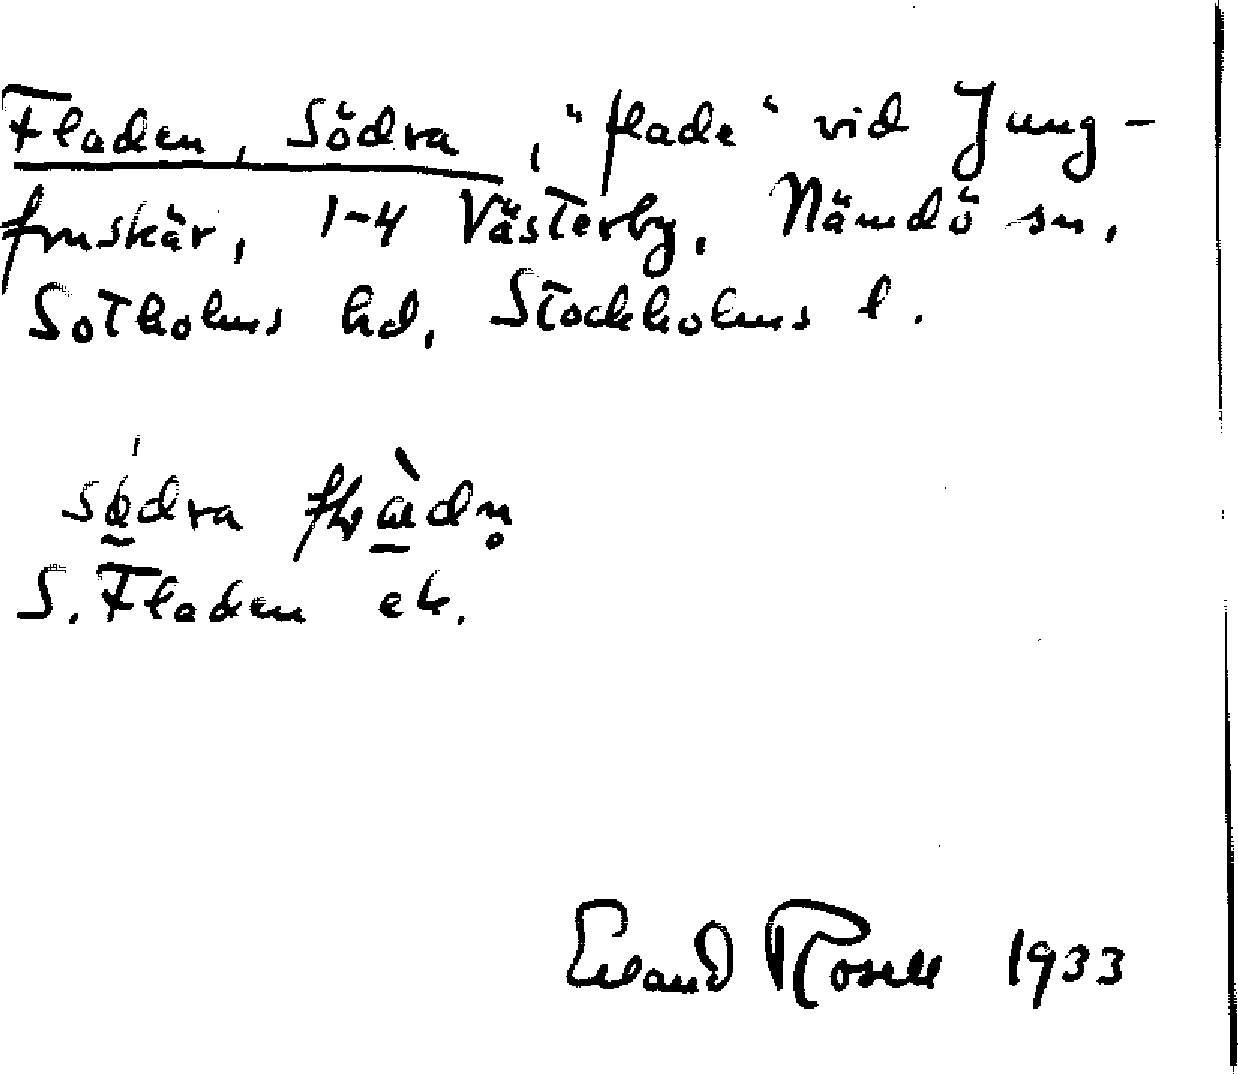 Fladen, Södra, "flade" vid Jung-
fruskär, 1-4 Västerby, Nämdö sn,
Sotholms hd, Stockholms l.
södra
S. Fladen ek.
Erland Rosell 1933